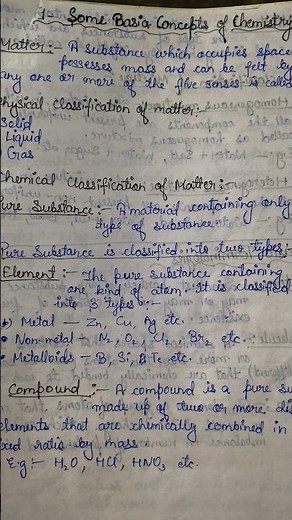 1- Some Basic Concepts of Chemistry
Matter:- A substance which occupies space
possesses mass and can be felt by
any one or more of the five senses is called
Physical Classification of matter:-
Solid
Liquid
Gas
Chemical Classification of Matter:-
Pure Substance:- A material containing only
type of substance
Pure Substance is classified into two types:-
Element:- The pure substance containing
one kind of atom. It is classified
into 3 types:-
Metal - Zn, Cu, Ag etc.
• Non-metal - N₂, O₂, Cl₂, Br₂ etc.
• Metalloids - B, Si, Te etc.
Compound:- A compound is a pure su
made up of two or more di
elements that are chemically combined in
xed ratio by mass.
E.g:- H₂O, HCl, HNO₃ etc.